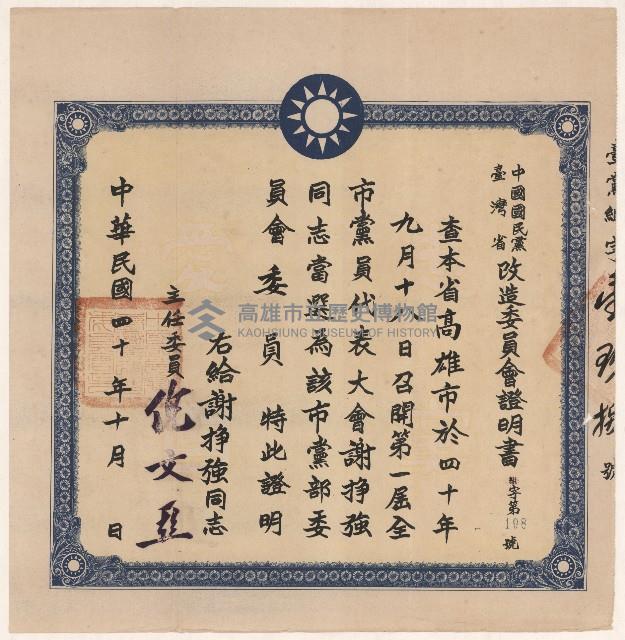 臺黨組字壹玖捌號
中國國民黨
臺灣省
改造委員會證明書
組字第108號
查本省高雄市於四十年
九月十八日召開第一屆全
市黨員代表大會謝掙強
同志當選為該市黨部委
員會委員 特此證明
右給謝掙強同志
主任委員 倪文亞
中華民國四十年十月 日
高雄市立歷史博物館
KAOHSIUNG MUSEUM OF HISTORY